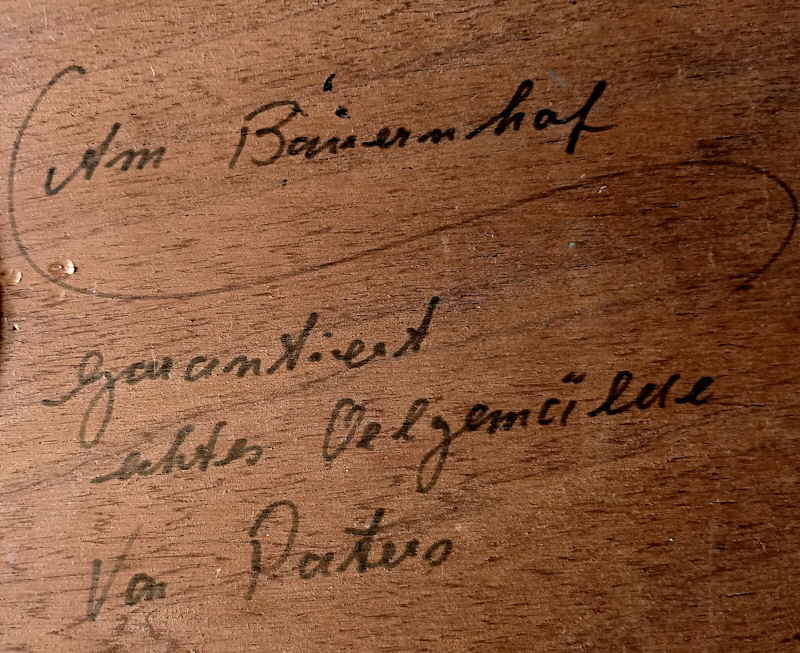 Am Bauernhof
Garantiert
echtes Oelgemälde
Von